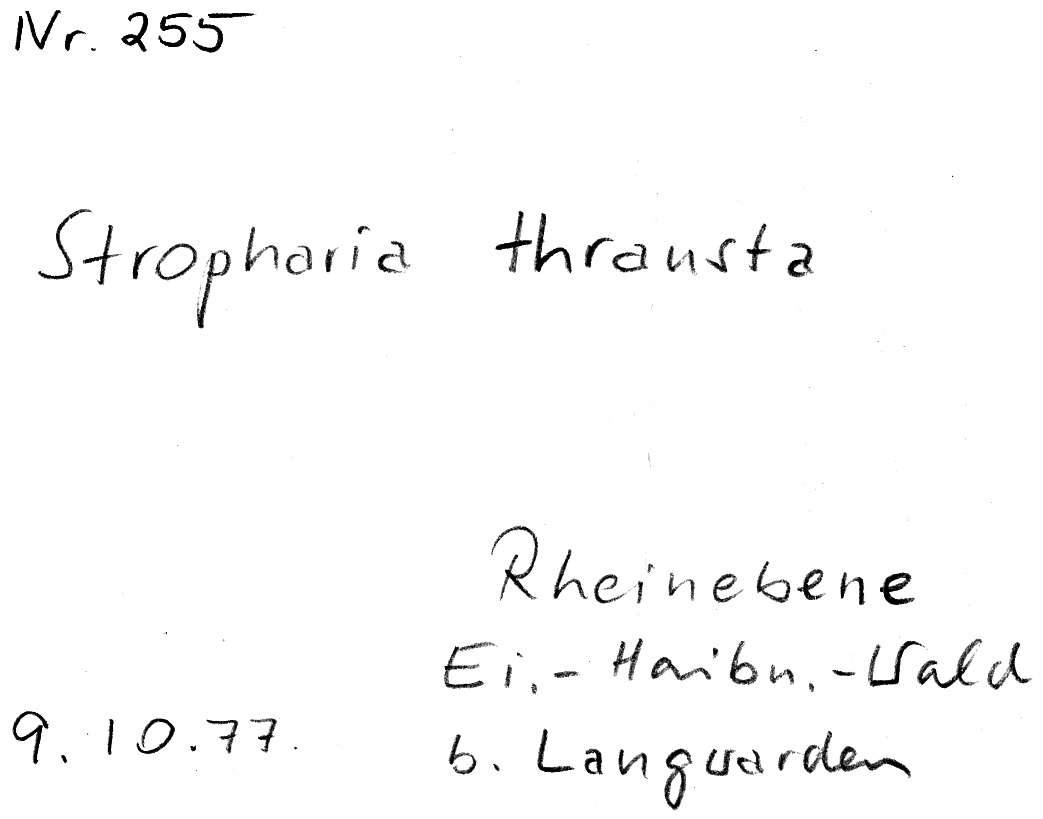 Nr. 255
Stropharia thrausta
Rheinebene
Ei.-Haibu.-Wald
9.10.77. b. Langwarden